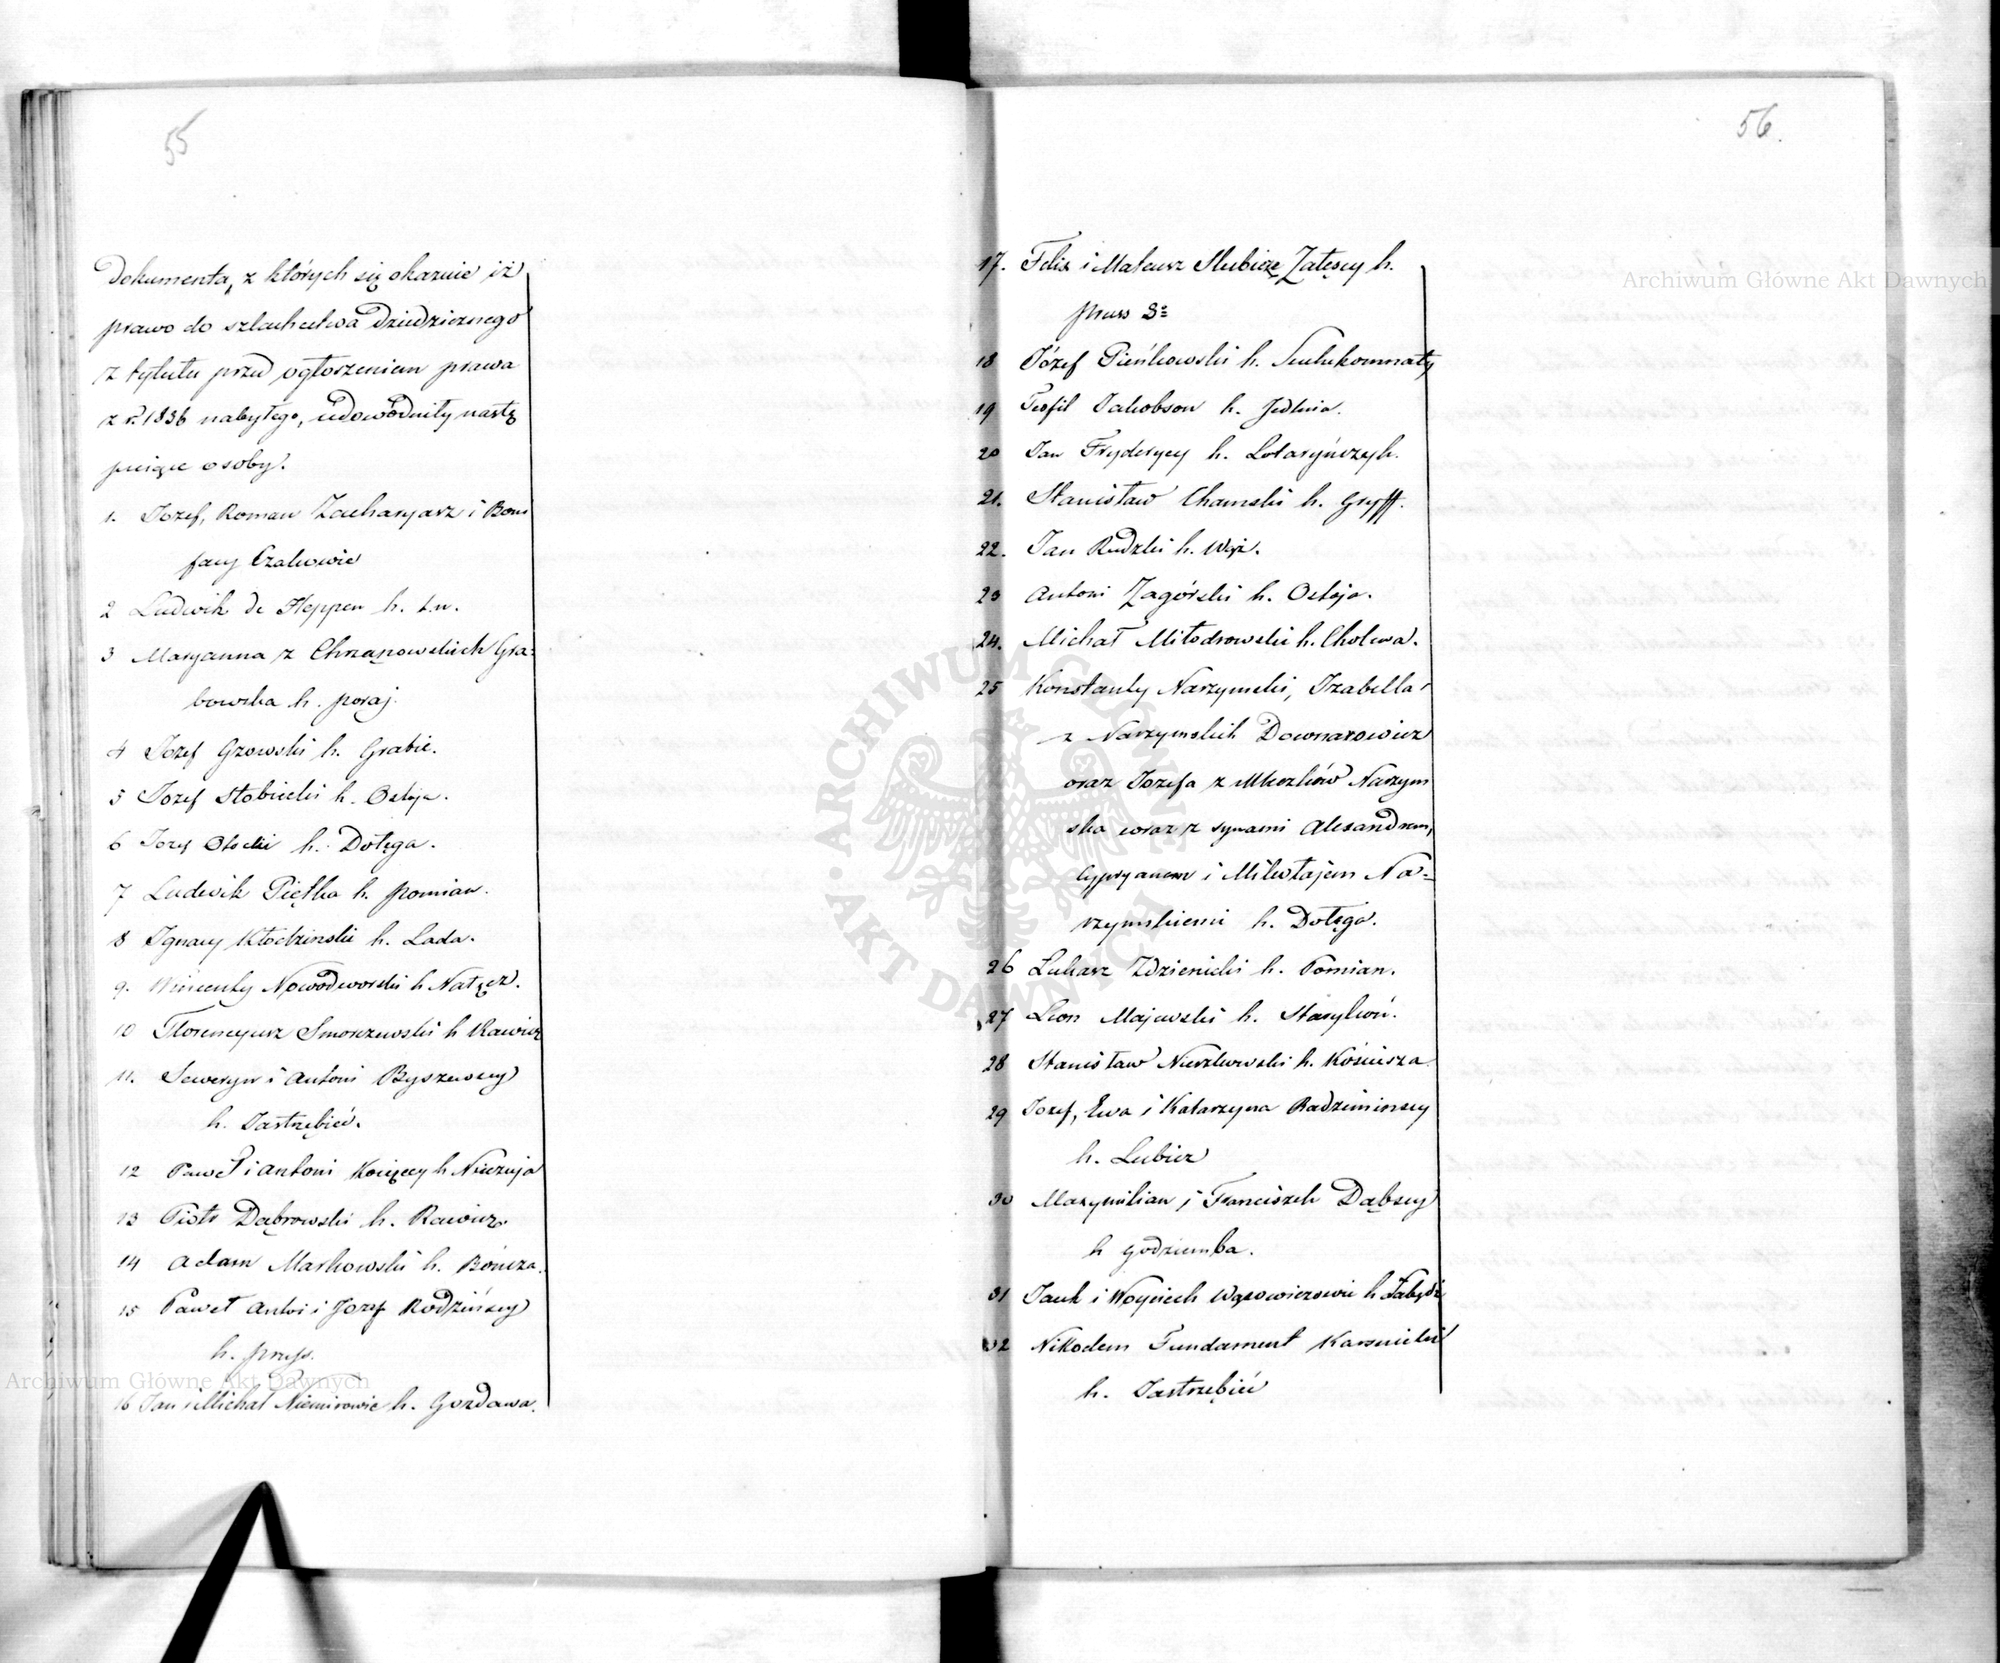 55
Dokumenta, z których się okazuie iż
prawo do szlachectwa dziedzicznego
z tytułu przed ogłoszeniem prawa
z r. 1836 nabytego, udowodniły nastę
puiące osoby.
1. Jozef, Roman Zacharyasz i Boni
facy Czakowie
2 Ludwik de Heppen h. t.n.
3 Maryanna z Chrząnowskich Gra=
bowska h. poraj.
4 Jozef Gzowski h. Grabie.
5 Jozef Stobiecki h. Ostoja.
6 Jozef Płocki h. Dołęga.
7 Ludwik Piętka h. pomian.
8 Ignacy Kłodzinski h. Lada.
9. Wincenty Nowodworski h Nałęcz.
10 Florencyusz Smorzewski h Rawicz
11. Seweryn i Antoni Byszewscy
h. Jastrzębiec.
12 Paweł i Antoni h Nieczuja
13 Piotr Dąbrowski h. Rawicz.
14 Adam Markowski h. Bończa.
15 Paweł Antoni i Jozef Rodzińscy
h. pruss.
16 Jan i Michał Niemirowie h. Gozdawa.
56.
17. Felix i Mateusz Słubicze Załęscy h.
pruss 3=
18 Józef Pieńkowski h. Suchekomnaty
19 Teofil Jakobson h. Jedlina.
20 Jan Fryderycy h. Lotaryńczyk.
21. Stanisław Chamski h. Gryff.
22. Jan Rudzki h. Wąż.
23 Antoni Zagórski h. Ostoja.
24. Michał Miłodrowski h. Cholewa.
25 Konstanty Narzymski, Izabella
z Narzymskich Downarowicz
oraz Jozefa z Narzym
ska wraz z synami Alexandrem,
Cypryanem i Mikołajem Na=
rzymskiemi h. Dołęga.
26 Łukasz Zdzienicki h. Pomian.
27 Leon Majewski h. Starykoń.
28 Stanisław h. Kościesza
29 Jozef, Ewa i Katarzyna Radziminscy
h. Lubicz
30 Maxymilian i Franciszek Dąbscy
h godziemba.
31 i Woyciech Wąsowiczowie h Łabędź
32 Nikodem Fundament Karśnicki
h. Jastrzębiec
Archiwum Główne Akt Dawnych
Archiwum Główne Akt Dawnych
ARCHIWUM GŁÓWNE
AKT DAWNYCH